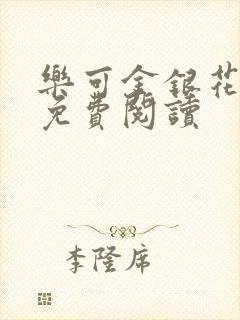 樂可金銀花
免費閱讀
李隆席